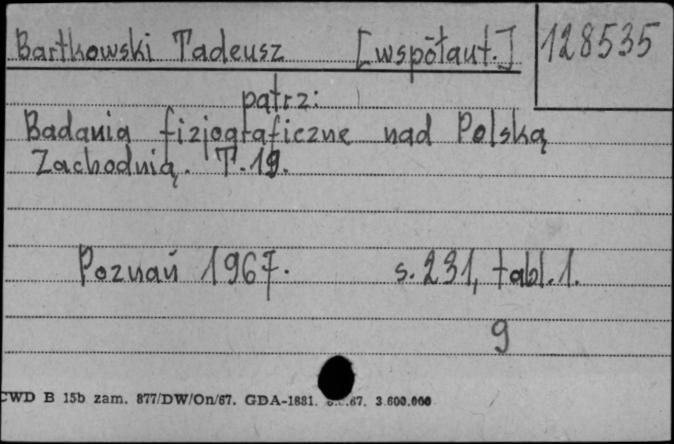 Bartkowski Tadeusz [współaut.] 128535
patrz:
Badania fizjograficzne nad Polską
Zachodnią. T.19.
Poznań 1967. s.231, tabl.1.
9
CWD B 15b zam. 877/DW/On/67. GDA-1881. 67. 3.600.000